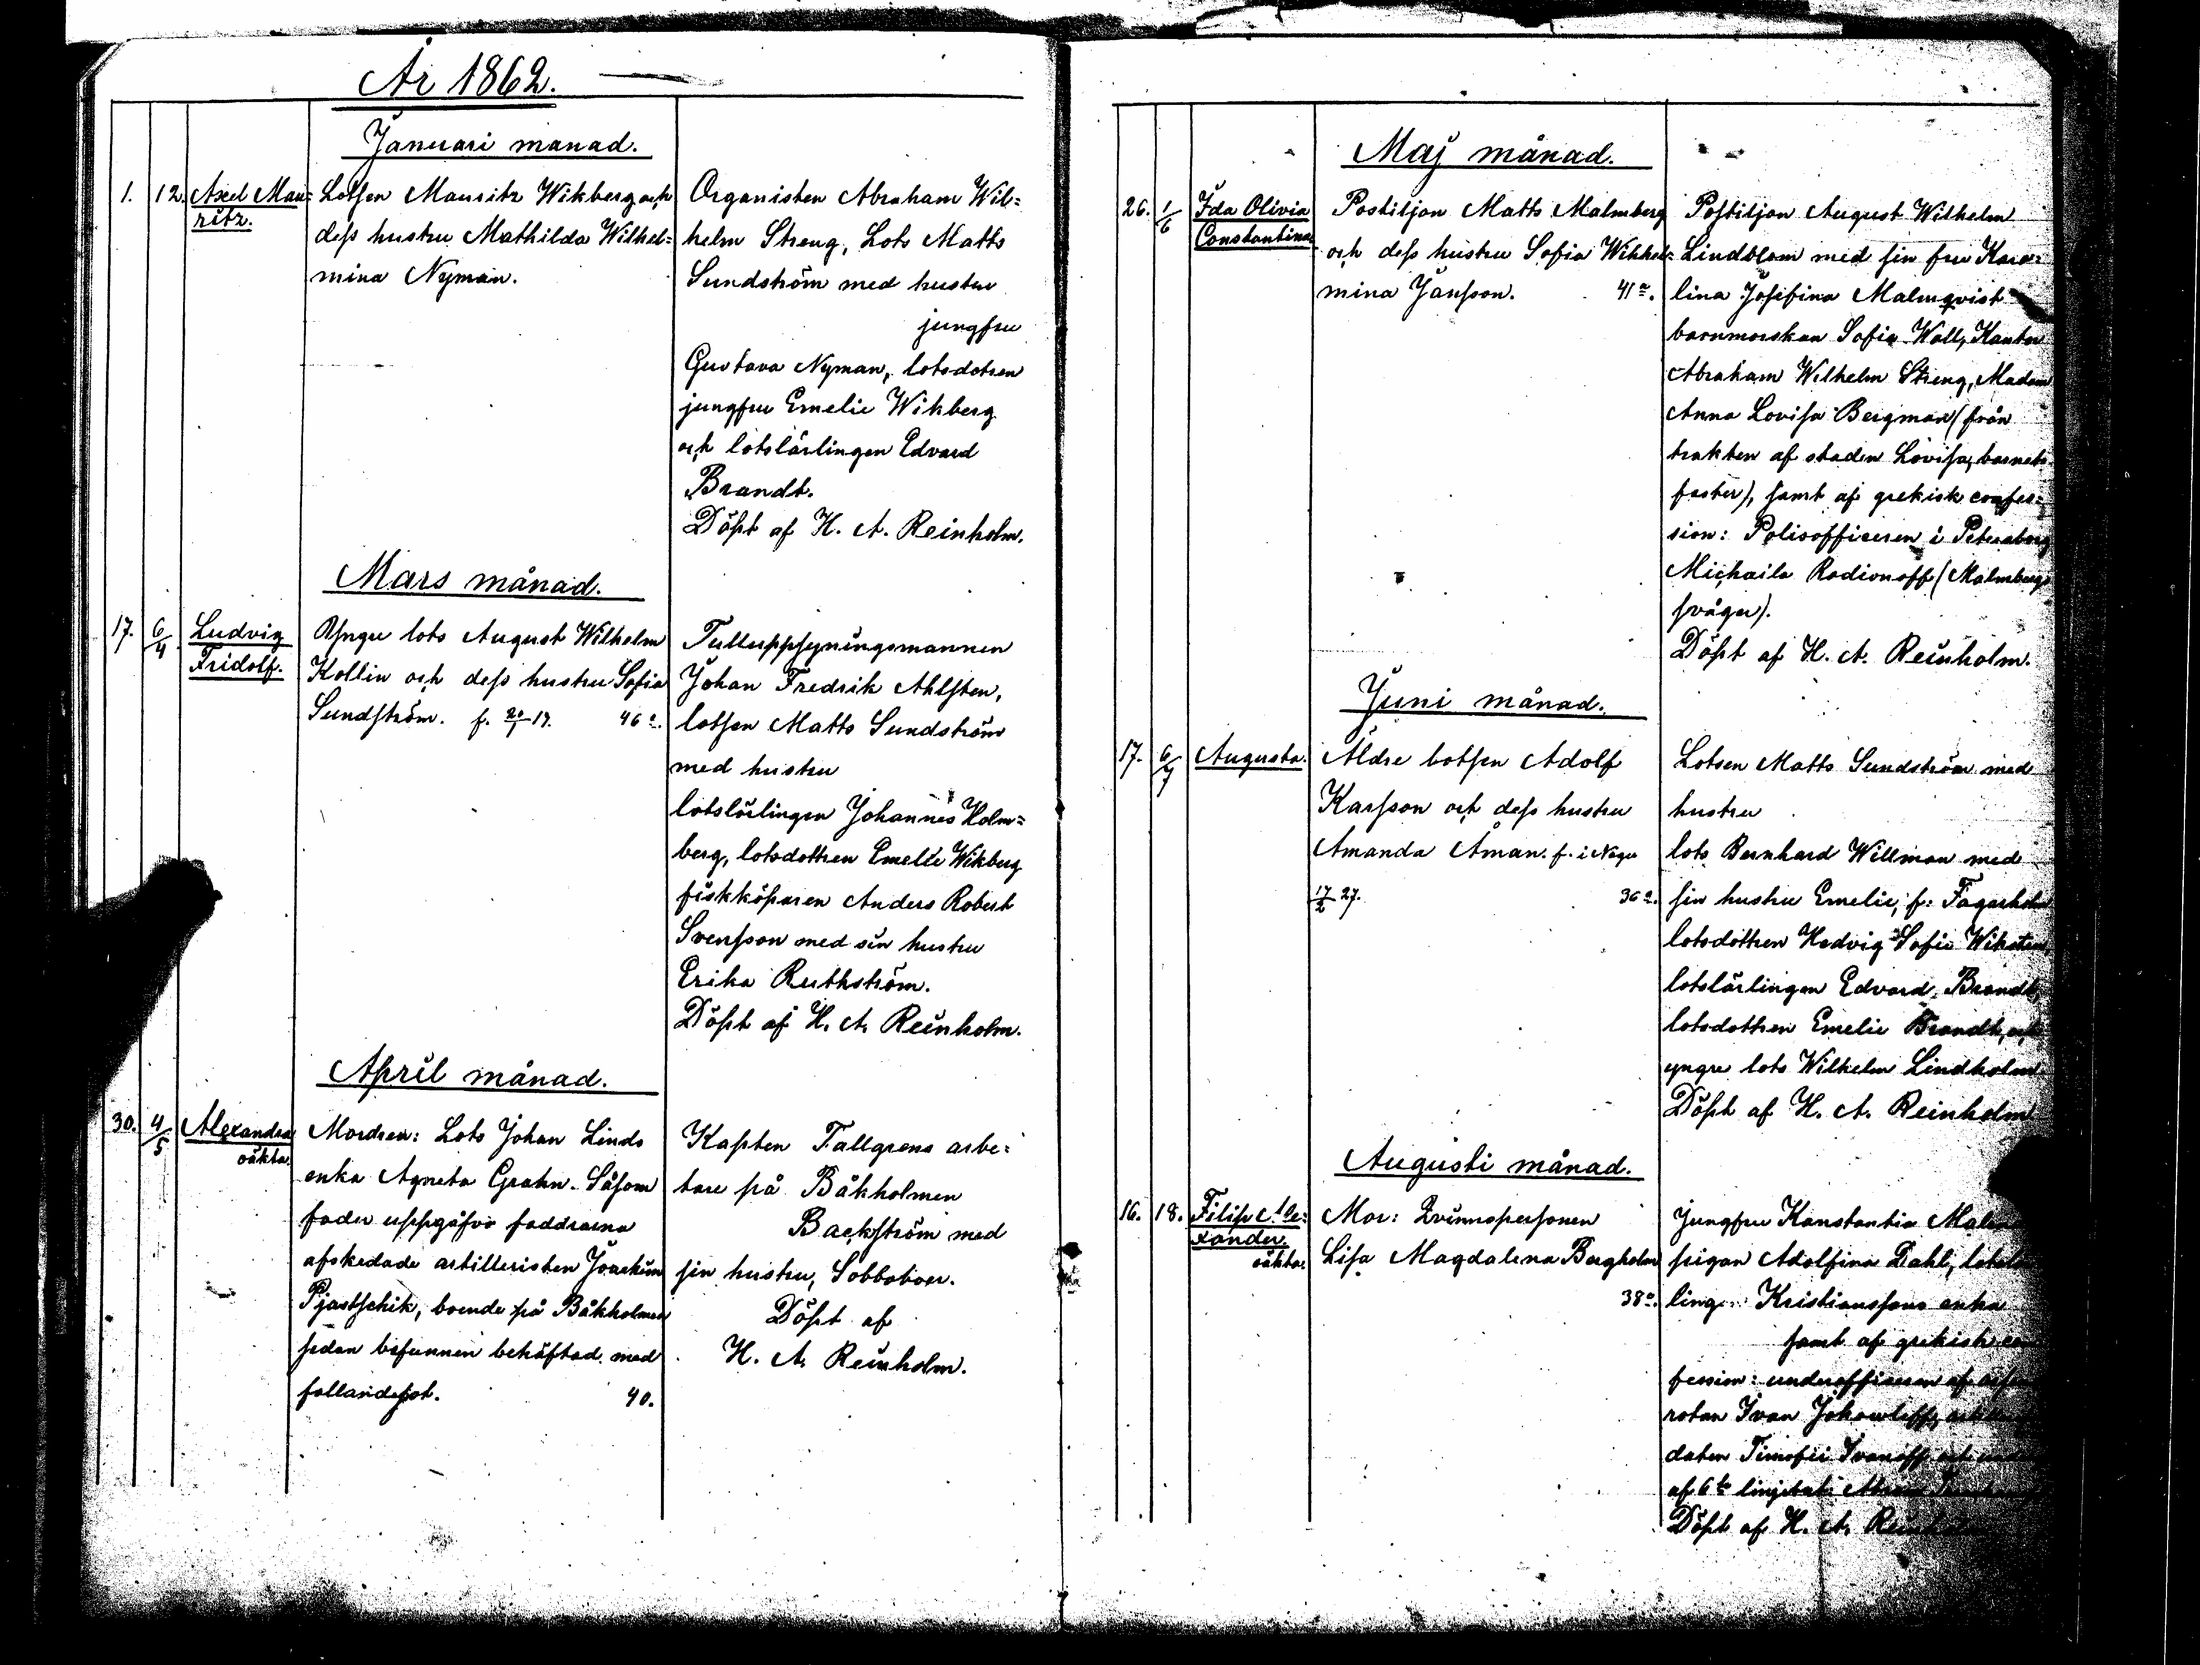 År 1862.
Januari månad.
1. 12. Axel Mau=
ritz.
Lotsen Mauritz Wikberg och
dess hustru Mathilda Wilhel=
mina Nyman.
Organisten Abraham Wil=
helm Streng, Lots Matts
Sundström med hustru
jungfru
Gustava Nyman, lotsdotren
jungfru Emelie Wikberg
och lotslärlingen Edvard
Brandt.
Döpt af H. A. Reinholm.
Mars månad.
17. 6/4 Ludvig
Fridolf.
Yngre lots August Wilhelm
Kollin och dess hustru Sofia
Sundström. f. 20/1 19. 46 a.
Tulluppsyningsmannen
Johan Fredrik Ahlsten,
lotsen Matts Sundström
med hustru
lotslärlingen Johannes Holm=
berg, lotsdottren Emelie Wikberg
fiskköparen Anders Robert
Svensson med sin hustru
Erika Ruthström.
Döpt af H. A. Reinholm.
April månad.
30. 4/5 Alexandra
oäkta
Modren: Lots Johan Linds
enka Agneta Grahn. Såsom
fader uppgåfvo faddrarna
afskedade artilleristen Joachim
Pjastschik, boende på Båkholmen
sedan befunnen behäftad med
fallandesot. 40.
Kapten Tallgrens arbe=
tare på Båkholmen
Backström med
sin hustru, Sobbotoer.
Döpt af
H. A. Reinholm.
Maj månad.
26. 1/6 Ida Olivia
Constantina
Postiljon Matts Malmberg
och dess hustru Sofia Wilhel=
mina Jansson. 41 a.
Postiljon August Wilhelm
Lindblom med sin fru Karo=
lina Josefina Malmqvist
barnmorskan Sofia Wall, Kantor
Abraham Wilhelm Streng, Madam
Anna Lovisa Bergman (från
trakten af staden Lovisa, barnets
faster), samt af grekisk confes=
sion: Polisofficeren i Petersborg
Michaila Rodionoff (Malmbergs
svåger).
Döpt af H. A. Reinholm.
Juni månad.
17. 6/7 Augusta.
Äldre lotsen Adolf
Karsson och dess hustru
Amanda Åman. f. i Nagu
17/2 27. 36 a.
Lotsen Matts Sundström med
hustru
lots Bernhard Willman med
sin hustru Emelie, f: Fagerholm
lotsdottren Hedvig Sofie Wiksten,
lotslärlingen Edvard Brandt,
lotsdottren Emelie Brandt, och
yngre lots Wilhelm Lindholm
Döpt af H. A. Reinholm
Augusti månad.
16. 18. Filip Ale=
xander.
oäkta
Mor: Qvinnspersonen
Lisa Magdalena Bergholm
38 a.
Jungfru Konstantia
pigan Adolfina Dahl,
Kristianssons enka
samt af grekisk con
fession: underofficeren af
rotan Ivan Jakowleff,
daten Timofei Ivanoff och
af 6te
Döpt af H. A. Reinholm